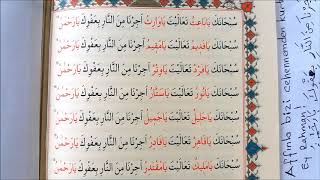 سُبْحَانَكَ يَابَاعِثُ تَعَالَيْتَ يَاوَارِثُ اَجِرْنَا مِنَ النَّارِ بِعَفْوِكَ يَارَحْمٰنُ
سُبْحَانَكَ يَاقَدِيمُ تَعَالَيْتَ يَامُقِيمُ اَجِرْنَا مِنَ النَّارِ بِعَفْوِكَ يَارَحْمٰنُ
سُبْحَانَكَ يَافَرْدُ تَعَالَيْتَ يَاوِتْرُ اَجِرْنَا مِنَ النَّارِ بِعَفْوِكَ يَارَحْمٰنُ
سُبْحَانَكَ يَانُورُ تَعَالَيْتَ يَاسَتَّارُ اَجِرْنَا مِنَ النَّارِ بِعَفْوِكَ يَارَحْمٰنُ
سُبْحَانَكَ يَاجَلِيلُ تَعَالَيْتَ يَاجَمِيلُ اَجِرْنَا مِنَ النَّارِ بِعَفْوِكَ يَارَحْمٰنُ
سُبْحَانَكَ يَاقَاهِرُ تَعَالَيْتَ يَاقَادِرُ اَجِرْنَا مِنَ النَّارِ بِعَفْوِكَ يَارَحْمٰنُ
سُبْحَانَكَ يَامَلِيكُ تَعَالَيْتَ يَامُقْتَدِرُ اَجِرْنَا مِنَ النَّارِ بِعَفْوِكَ يَارَحْمٰنُ
Affınla bizi cehennemden
Ey Rahman!